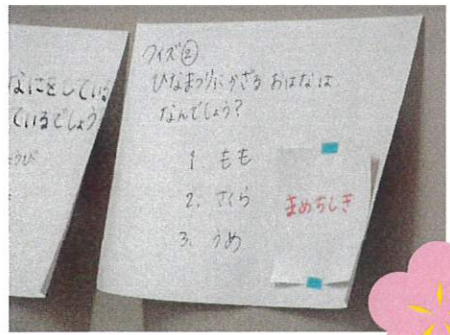 なにをしている
ているでしょう
クイズ②
ひなまつりにかざる おはなは
なんでしょう?
1. もも
2. さくら
3. うめ
まめちしき